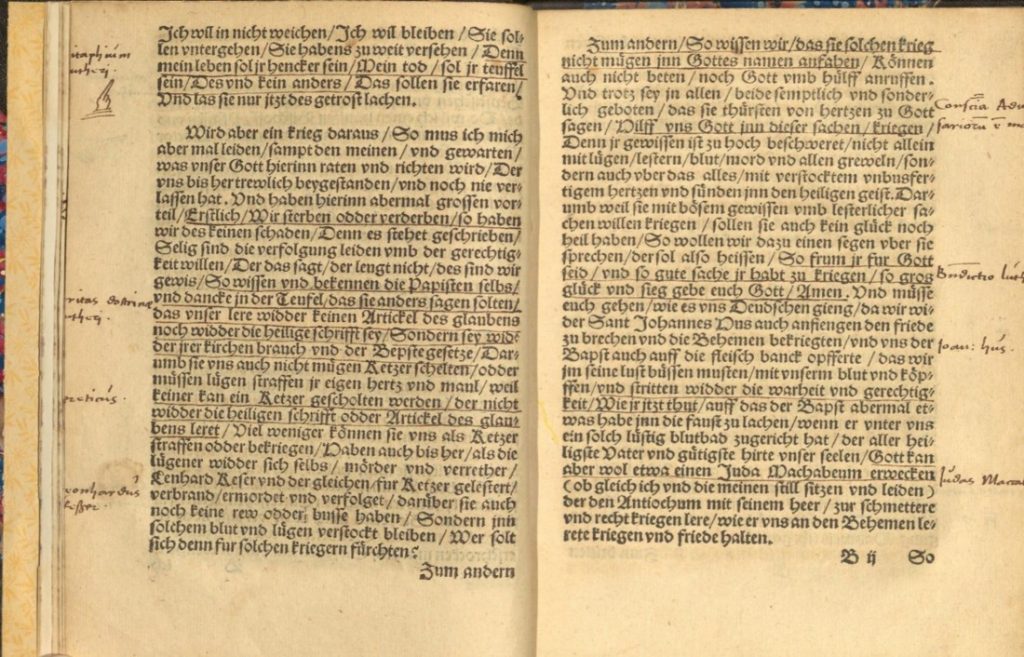 Ich wil in nicht weichen / Ich wil bleiben / Sie sol-
len vntergehen / Sie habens zu weit versehen / Denn
mein leben sol jr hencker sein / Mein tod / sol jr teuffel
sein / Des vnd kein anders / Das sollen sie erfaren /
Vnd las sie nur jtzt des getrost lachen.
Wird aber ein krieg daraus / So mus ich mich
aber mal leiden / sampt den meinen / vnd gewarten /
was vnser Gott hierinn raten vnd richten wird / Der
vns bis her trewlich beygestanden / vnd noch nie ver-
lassen hat. Vnd haben hierinn abermal grossen vor-
teil / Erstlich / Wir sterben odder verderben / so haben
wir des keinen schaden / Denn es stehet geschrieben /
Selig sind die verfolgung leiden vmb der gerechtig-
keit willen / Der das sagt / der leugt nicht / des sind wir
gewis / So wissen vnd bekennen die Papisten selbs /
vnd dancke jn der Teufel / das sie anders sagen solten /
das vnser lere widder keinen Artickel des glaubens
noch widder die heilige schrifft sey / Sondern sey wid-
der jrer kirchen brauch vnd der Bepste gesetze / Dar-
umb sie vns auch nicht mügen Ketzer schelten / odder
müssen lügen straffen jr eigen hertz vnd maul / weil
keiner kan ein Ketzer gescholten werden / der nicht
widder die heiligen schrifft odder Artickel des glau-
bens leret / Viel weniger können sie vns als Ketzer
straffen odder bekriegen / Haben auch bis her / als die
lügener widder sich selbs / mörder vnd verrether /
Lenhard Keser vnd der gleichen / fur Ketzer gelestert /
verbrand / ermordet vnd verfolget / darüber sie auch
noch keine rew odder busse haben / Sondern jnn
solchem blut vnd lügen verstockt bleiben / Wer solt
sich denn fur solchen kriegern fürchten?
Zum andern
Zum andern / So wissen wir / das sie solchen krieg
nicht mügen jnn Gottes namen anfahen / Können
auch nicht beten / noch Gott vmb hülff anruffen.
Vnd trotz sey jn allen / beide semptlich vnd sonder-
lich geboten / das sie thürsten von hertzen zu Gott
sagen / Hilff vns Gott jnn dieser sachen / kriegen /
Denn jr gewissen ist zu hoch beschweret / nicht allein
mit lügen / lestern / blut / mord vnd allen greweln / son-
dern auch vber das alles / mit verstocktem vnbusfer-
tigem hertzen vnd sünden jnn den heiligen geist. Dar-
umb weil sie mit bösem gewissen vmb lesterlicher sa-
chen willen kriegen / sollen sie auch kein glück noch
heil haben / So wollen wir dazu einen segen vber sie
sprechen / der sol also heissen / So frum jr fur Gott
seid / vnd so gute sache jr habt zu kriegen / so gros
glück vnd sieg gebe euch Gott / Amen. Vnd müsse
euch gehen / wie es vns Deudschen gieng / da wir wi-
der Sant Johannes Hus auch anfiengen den friede
zu brechen vnd die Behemen bekriegten / vnd vns der
Bapst auch auff die fleisch banck opfferte / das wir
jm seine lust büssen musten / mit vnserm blut vnd köp-
ffen / vnd stritten widder die warheit vnd gerechtig-
keit / Wie jr jtzt thut / auff das der Bapst abermal et-
was habe jnn die faust zu lachen / wenn er vnter vns
ein solch lüstig blutbad zugericht hat / der aller hei-
ligste Vater vnd gütigste hirte vnser seelen / Gott kan
aber wol etwa einen Juda Machabeum erwecken
(ob gleich ich vnd die meinen still sitzen vnd leiden)
der den Antiochum mit seinem heer / zur schmettere
vnd recht kriegen lere / wie er vns an den Behemen le-
rete kriegen vnd friede halten.
B ij So
Joan: Hus.